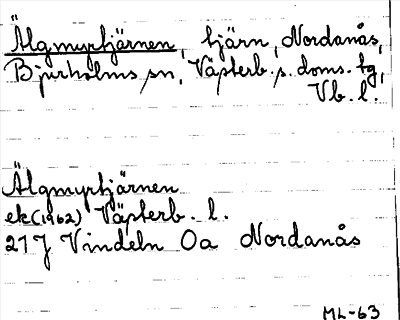 Älgmyrtjärnen, tjärn, Nordanås,
Bjurholms sn, Västerb. s. doms. tg,
Vb. l.
Älgmyrtjärnen
ek (1962) Västerb. l.
21 J Vindeln 0a Nordanås
ML-63